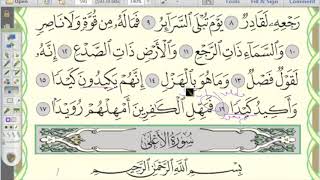 رَجْعِهِۦ لَقَادِرٌ ٨ يَوْمَ تُبْلَى ٱلسَّرَآئِرُ ٩ فَمَا لَهُۥ مِن قُوَّةٍ وَلَا نَاصِرٍ
١٠ وَٱلسَّمَآءِ ذَاتِ ٱلرَّجْعِ ١١ وَٱلْأَرْضِ ذَاتِ ٱلصَّدْعِ ١٢ إِنَّهُۥ
لَقَوْلٌ فَصْلٌ ١٣ وَمَا هُوَ بِٱلْهَزْلِ ١٤ إِنَّهُمْ يَكِيدُونَ كَيْدًا ١٥
وَأَكِيدُ كَيْدًا ١٦ فَمَهِّلِ ٱلْكَٰفِرِينَ أَمْهِلْهُمْ رُوَيْدًۢا ١٧
سُورَةُ ٱلْأَعْلَىٰ
بِسْمِ ٱللَّهِ ٱلرَّحْمَٰنِ ٱلرَّحِيمِ